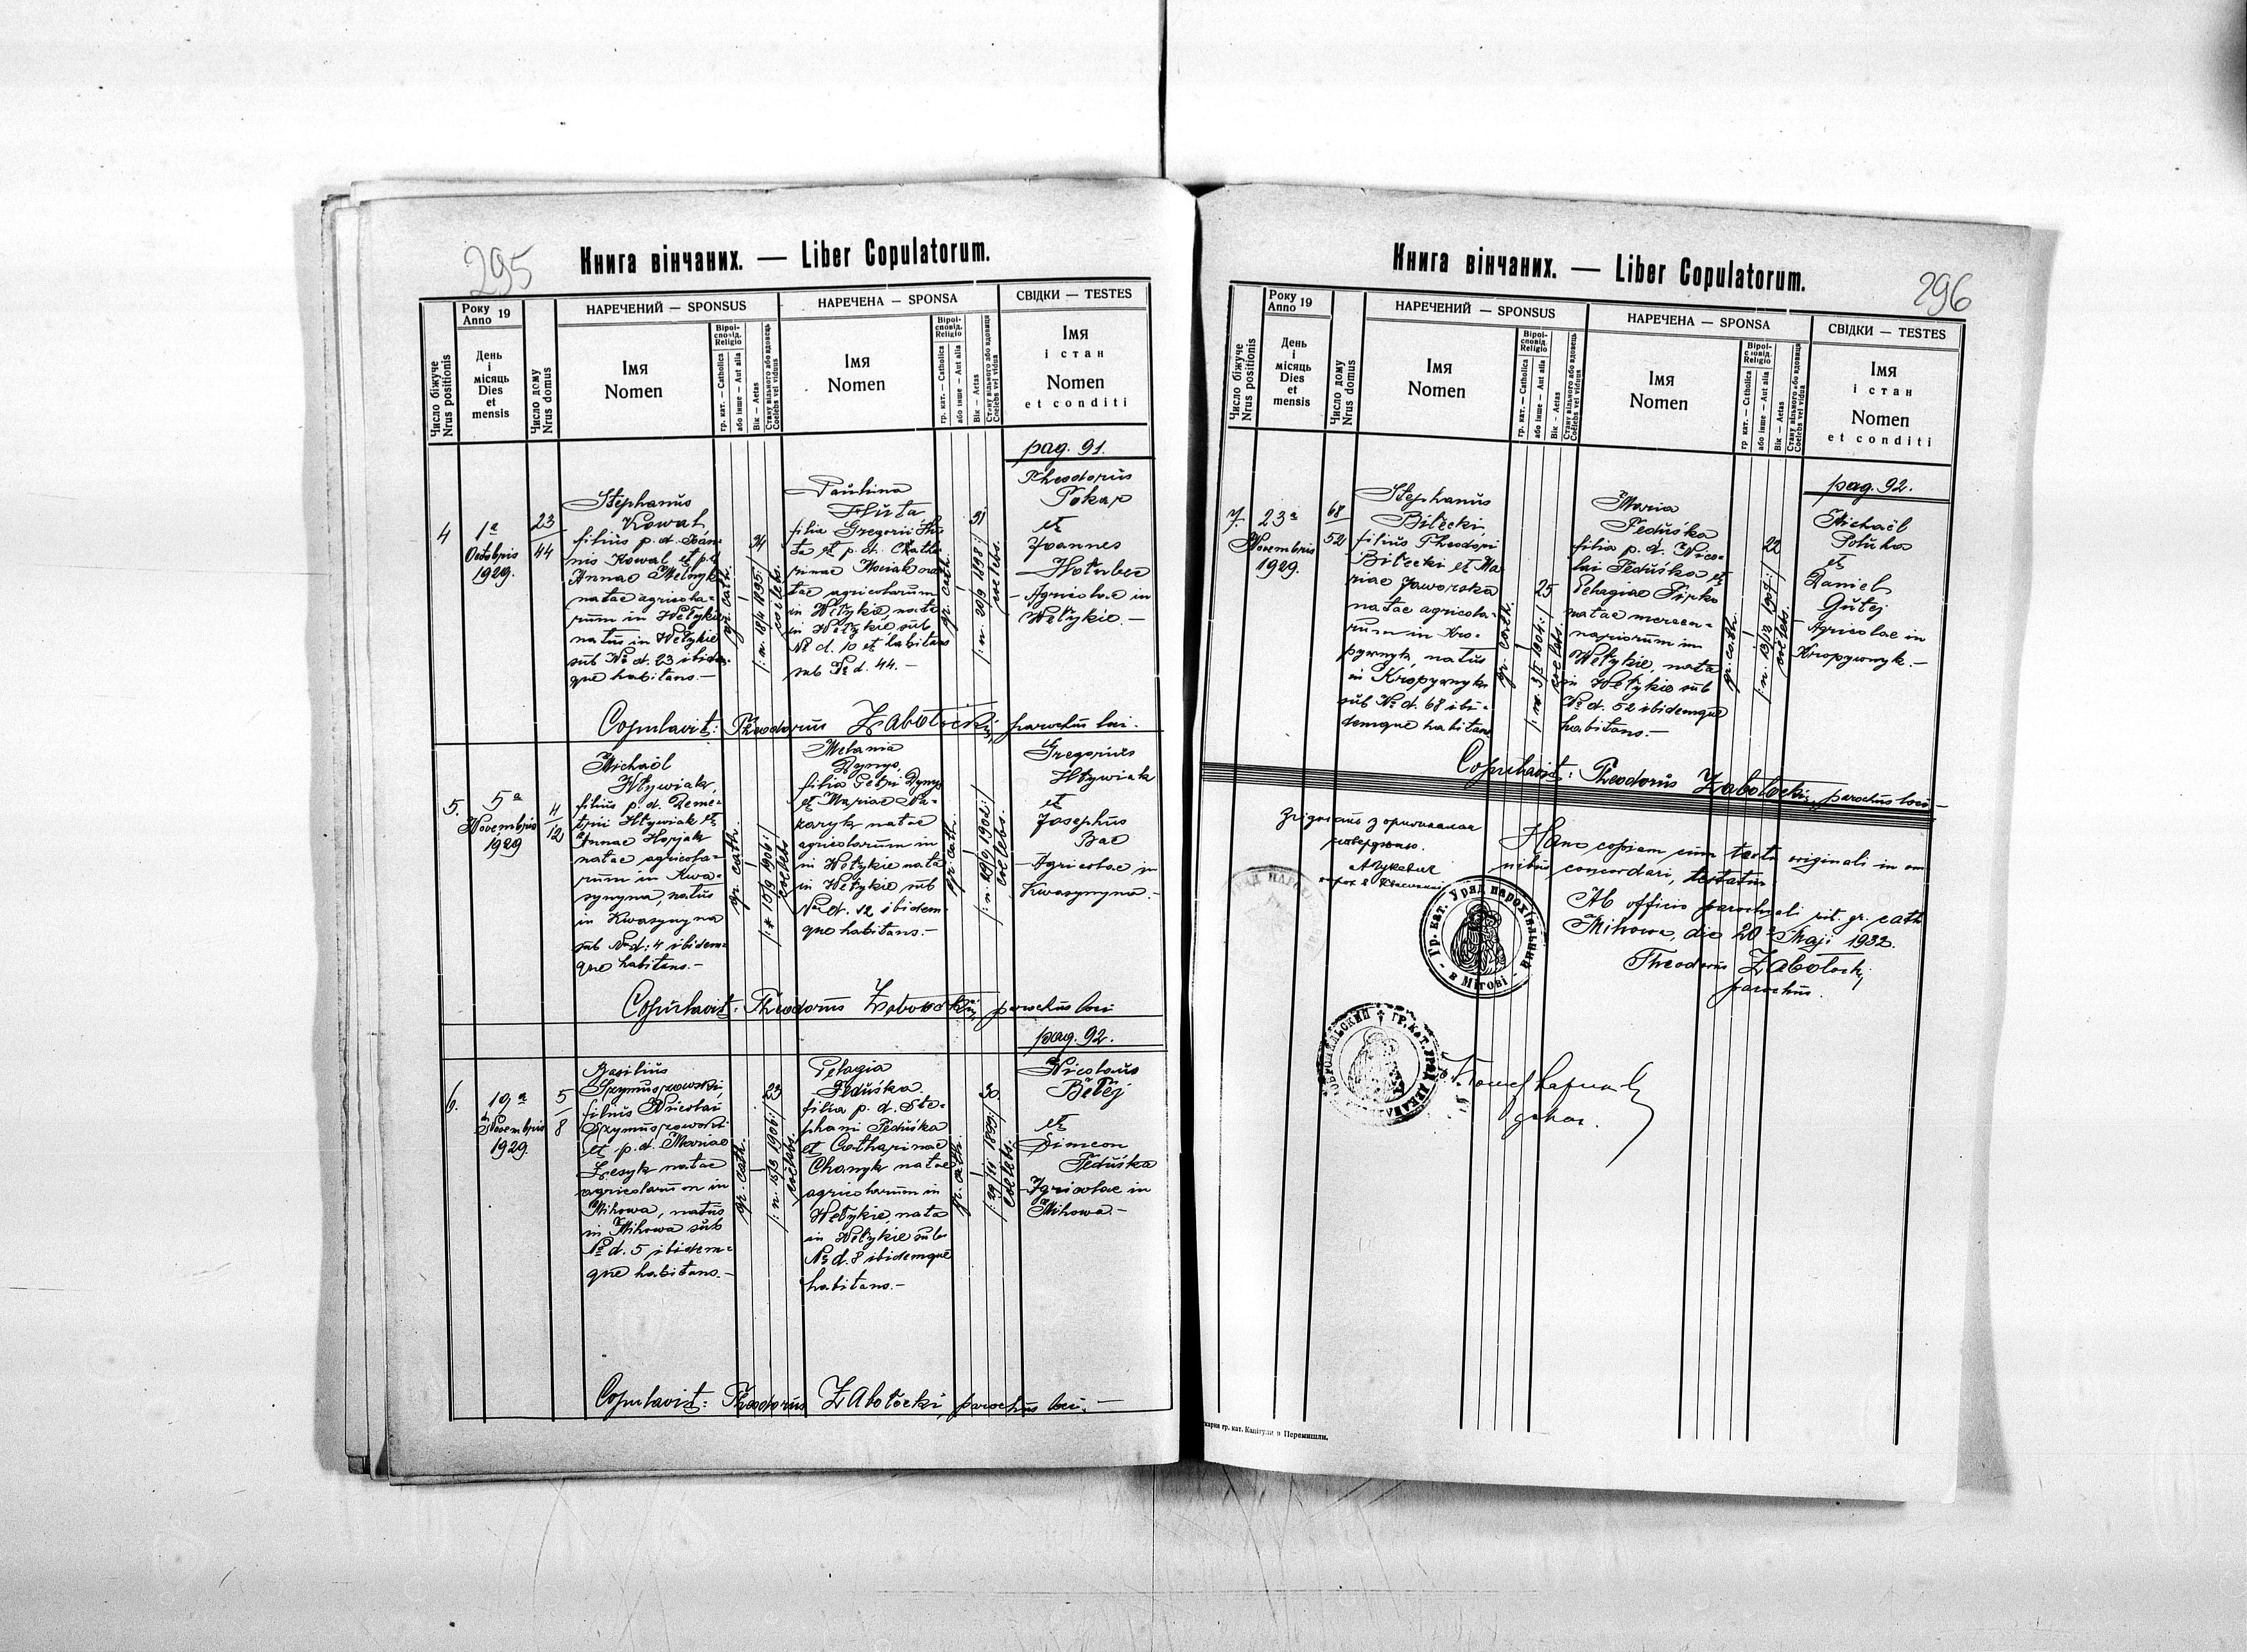 295
Книга вінчаних. — Liber Copulatorum.
Число біжуче
Nrus positionis
Року
Anno 19
День
і
місяць
Dies
et
mensis
Число дому
Nrus domus
НАРЕЧЕНИЙ — SPONSUS
Імя
Nomen
Віроі-
сповід.
Religio
гр. кат. — Catholica
або інше — Aut alia
Вік — Aetas
Стану вільного або вдовець
Coelebs vel viduus
НАРЕЧЕНА — SPONSA
Імя
Nomen
Віроі-
сповід.
Religio
гр. кат. — Catholica
або інше — Aut alia
Вік — Aetas
Стану вільного або вдовиця
Coelebs vel viduus
СВІДКИ — TESTES
Імя
і стан
Nomen
et conditi
pag. 91.
4
1ª
Octobris
1929.
23
44
Stephanus
Kowal
filius p. d. Joan-
nis Kowal et p. d.
Annae Melnyk
natae agricola-
rum in Wełykie
natus in Wełykie
sub No d. 23 ibidem-
que habitans.—
gr. cath.
34
/: n. 18/4 1895:/
coelebs.
Paulina
filia Gregorii
et p. d. Catha-
rinae Mociak na-
tae agricolarum
in Wełykie, nata
in Wełykie sub
No d. 10 et habitans
sub No d. 44.—
gr. cath.
31
/: n. 20/9 1898:/
coelebs.
Theodorus
Tokar
et
Joannes
Hołubec
— Agricolae in
Wełykie.—
Copulavit: Theodorus Zabołocki, parochus loci.
5.
5ª
Novembris
1929
4
12
Michaël
Hływiak,
filius p. d. Deme-
trii Hływiak et
Annae Horjak
natae agricola-
rum in Kwa-
synyna, natus
in Kwasynyna
sub No d. 4 ibidem-
que habitans.—
gr. cath.
coelebs
Melania
Dynys,
filia Petri Dynys
et Mariae
natae
agricolarum in
in Wełykie nata
in Wełykie sub
No d. 12 ibidem-
que habitans.—
gr. cath.
coelebs.
Gregorius
Hływiak
et
Josephus
Bac
— Agricolae in
Kwasynyna.—
Copulavit: Theodorus Zabołocki, parochus loci
pag. 92.
6.
19ª
Novembris
1929.
5
8
Basilius
filius Nicolai
et p. d. Mariae
Łesyk natae
agricolarum in
Mihowa, natus
in Mihowa sub
No d. 5 ibidem-
que habitans.—
gr. cath.
23
/: n. 15/3 1906:/
coelebs.
Pelagia
Feduśka
filia p. d. Ste-
phani Feduśka
et Catharinae
Chomyk natae
agricolarum in
Wełykie, nata
in Wełykie sub
No d. 8 ibidemque
habitans.—
gr. cath.
30
/: 29/11 1899:/
coelebs.
Nicolaus
Bełej
et
Simeon
Feduśka
— Agricolae in
Mihowa.—
Copulavit: Theodorus Zabołocki, parochus loci.—
296
Книга вінчаних. — Liber Copulatorum.
Число біжуче
Nrus positionis
Року
Anno 19
День
і
місяць
Dies
et
mensis
Число дому
Nrus domus
НАРЕЧЕНИЙ — SPONSUS
Імя
Nomen
Віроі-
сповід.
Religio
гр. кат. — Catholica
або інше — Aut alia
Вік — Aetas
Стану вільного або вдовець
Coelebs vel viduus
НАРЕЧЕНА — SPONSA
Імя
Nomen
Віроі-
сповід.
Religio
гр. кат. — Catholica
або інше — Aut alia
Вік — Aetas
Стану вільного або вдовиця
Coelebs vel viduus
СВІДКИ — TESTES
Імя
і стан
Nomen
et conditi
pag. 92.
7.
23ª
Novembris
1929.
68
52
Stephanus
Biłecki,
filius Theodori
Biłecki et Ma-
riae Jaworska
natae agricola-
rum in Kro-
pywnyk, natus
in Kropywnyk
sub No d. 68 ibi-
demque habitans
gr. cath.
25
coelebs.
Maria
Feduśka
filia p. d. Nico-
lai Feduśka et
Pelagiae Sirko
natae mercen-
nariorum in
Wełykie, nata
in Wełykie sub
No d. 52 ibidemque
habitans.—
gr. cath.
22
coelebs.
Michaël
Połuha
et
Daniel
Gutej
— Agricolae in
Kropywnyk.—
Copulavit: Theodorus Zabołocki, parochus loci—
Згідність з оригіналом
потверджаю.
Hanc copiam cum textu originali in om
nibus concordari, testatur.
Ab officio parochiali rit. gr. cath
Mihowa, die 20ª Maji 1932.
Theodorus Zabołocki,
parochus.
Гр. кат. Уряд парохіяльний
в Мігові
декан.
гр. кат. Капітули в Перемишли.